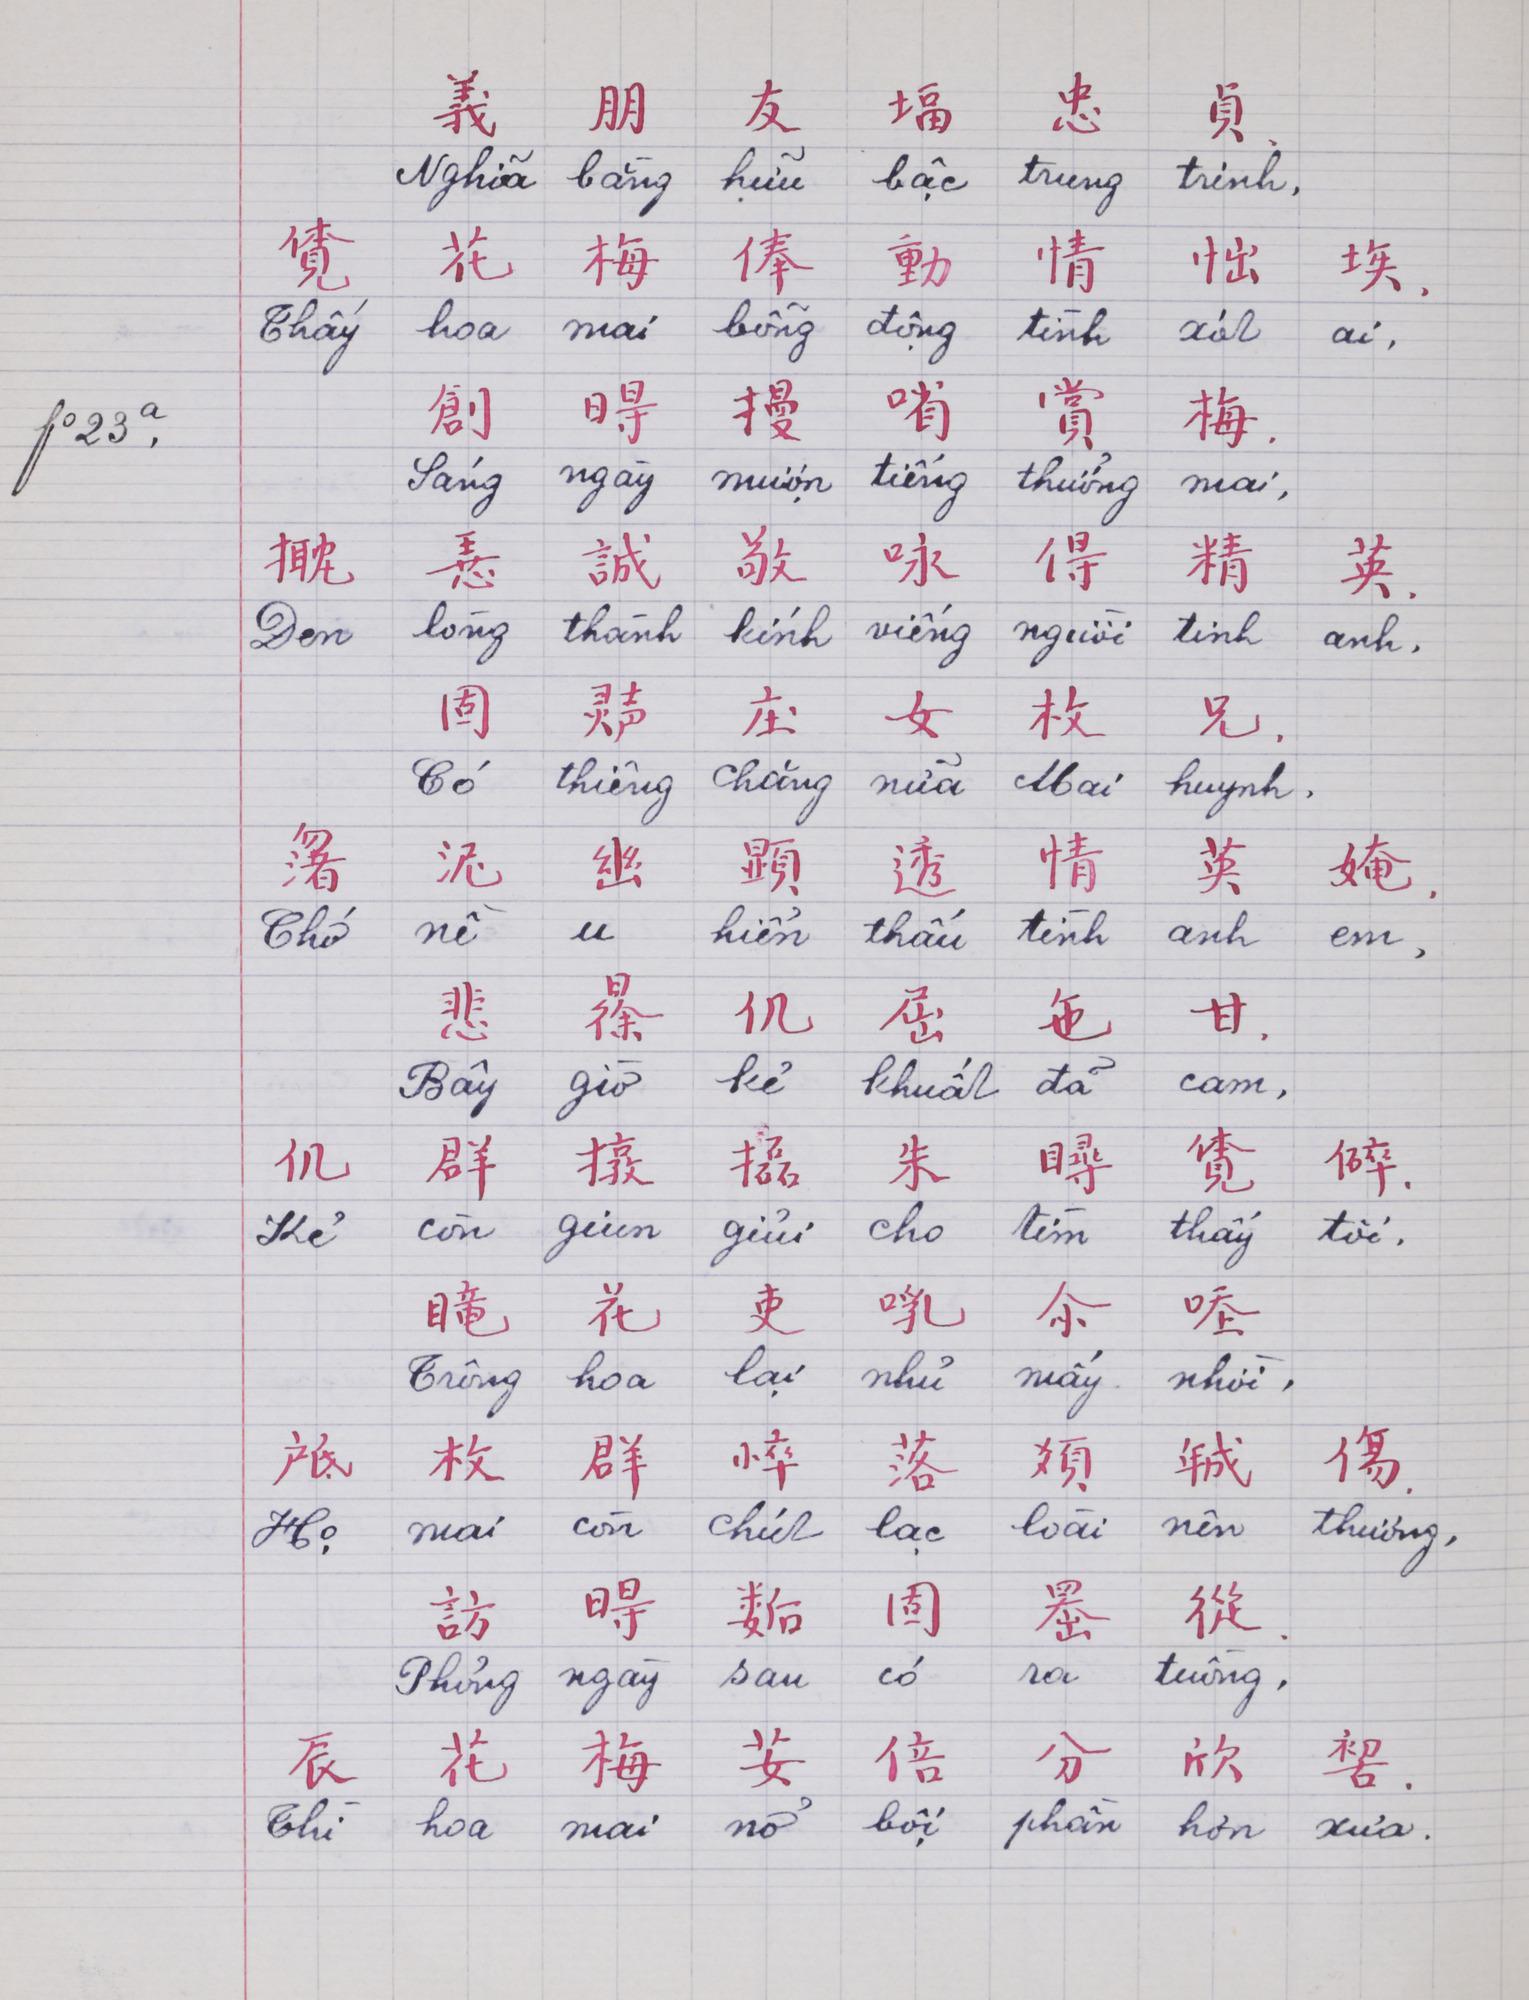 義 朋 友 堛 忠 貞
Nghĩa bằng hữu bậc trung trinh,
覓 花 梅 俸 動 情 怞 埃.
Thấy hoa mai bỗng động tình xót ai,
創 㝵 摱 哨 賞 梅.
fº 23ª.
Sáng ngày mượn tiếng thưởng mai,
誠 敬 咏 得 精 英.
Đen lòng thành kính viếng người tinh anh.
固 庄 女 枚 兄.
Có thiêng chăng nữa Mai huynh.
渃 泥 幽 顕 透 情 英 媕.
Chớ nề u hiển thấu tình anh em,
悲 仉 屈 甘.
Bây giờ kẻ khuất đã cam,
仉 群 朱 覓.
Kẻ còn giun giủi cho tìm thấy tôi.
花 吏 乳
Trông hoa lại nhủ mấy nhời,
枚 群 落 傷.
Họ mai còn chút lạc loài nên thương,
訪 固 從.
Phỏng ngày sau có ra tuồng,
辰 花 梅 芺 倍 分 欣 㗂.
Thì hoa mai nở bội phần hơn xưa.